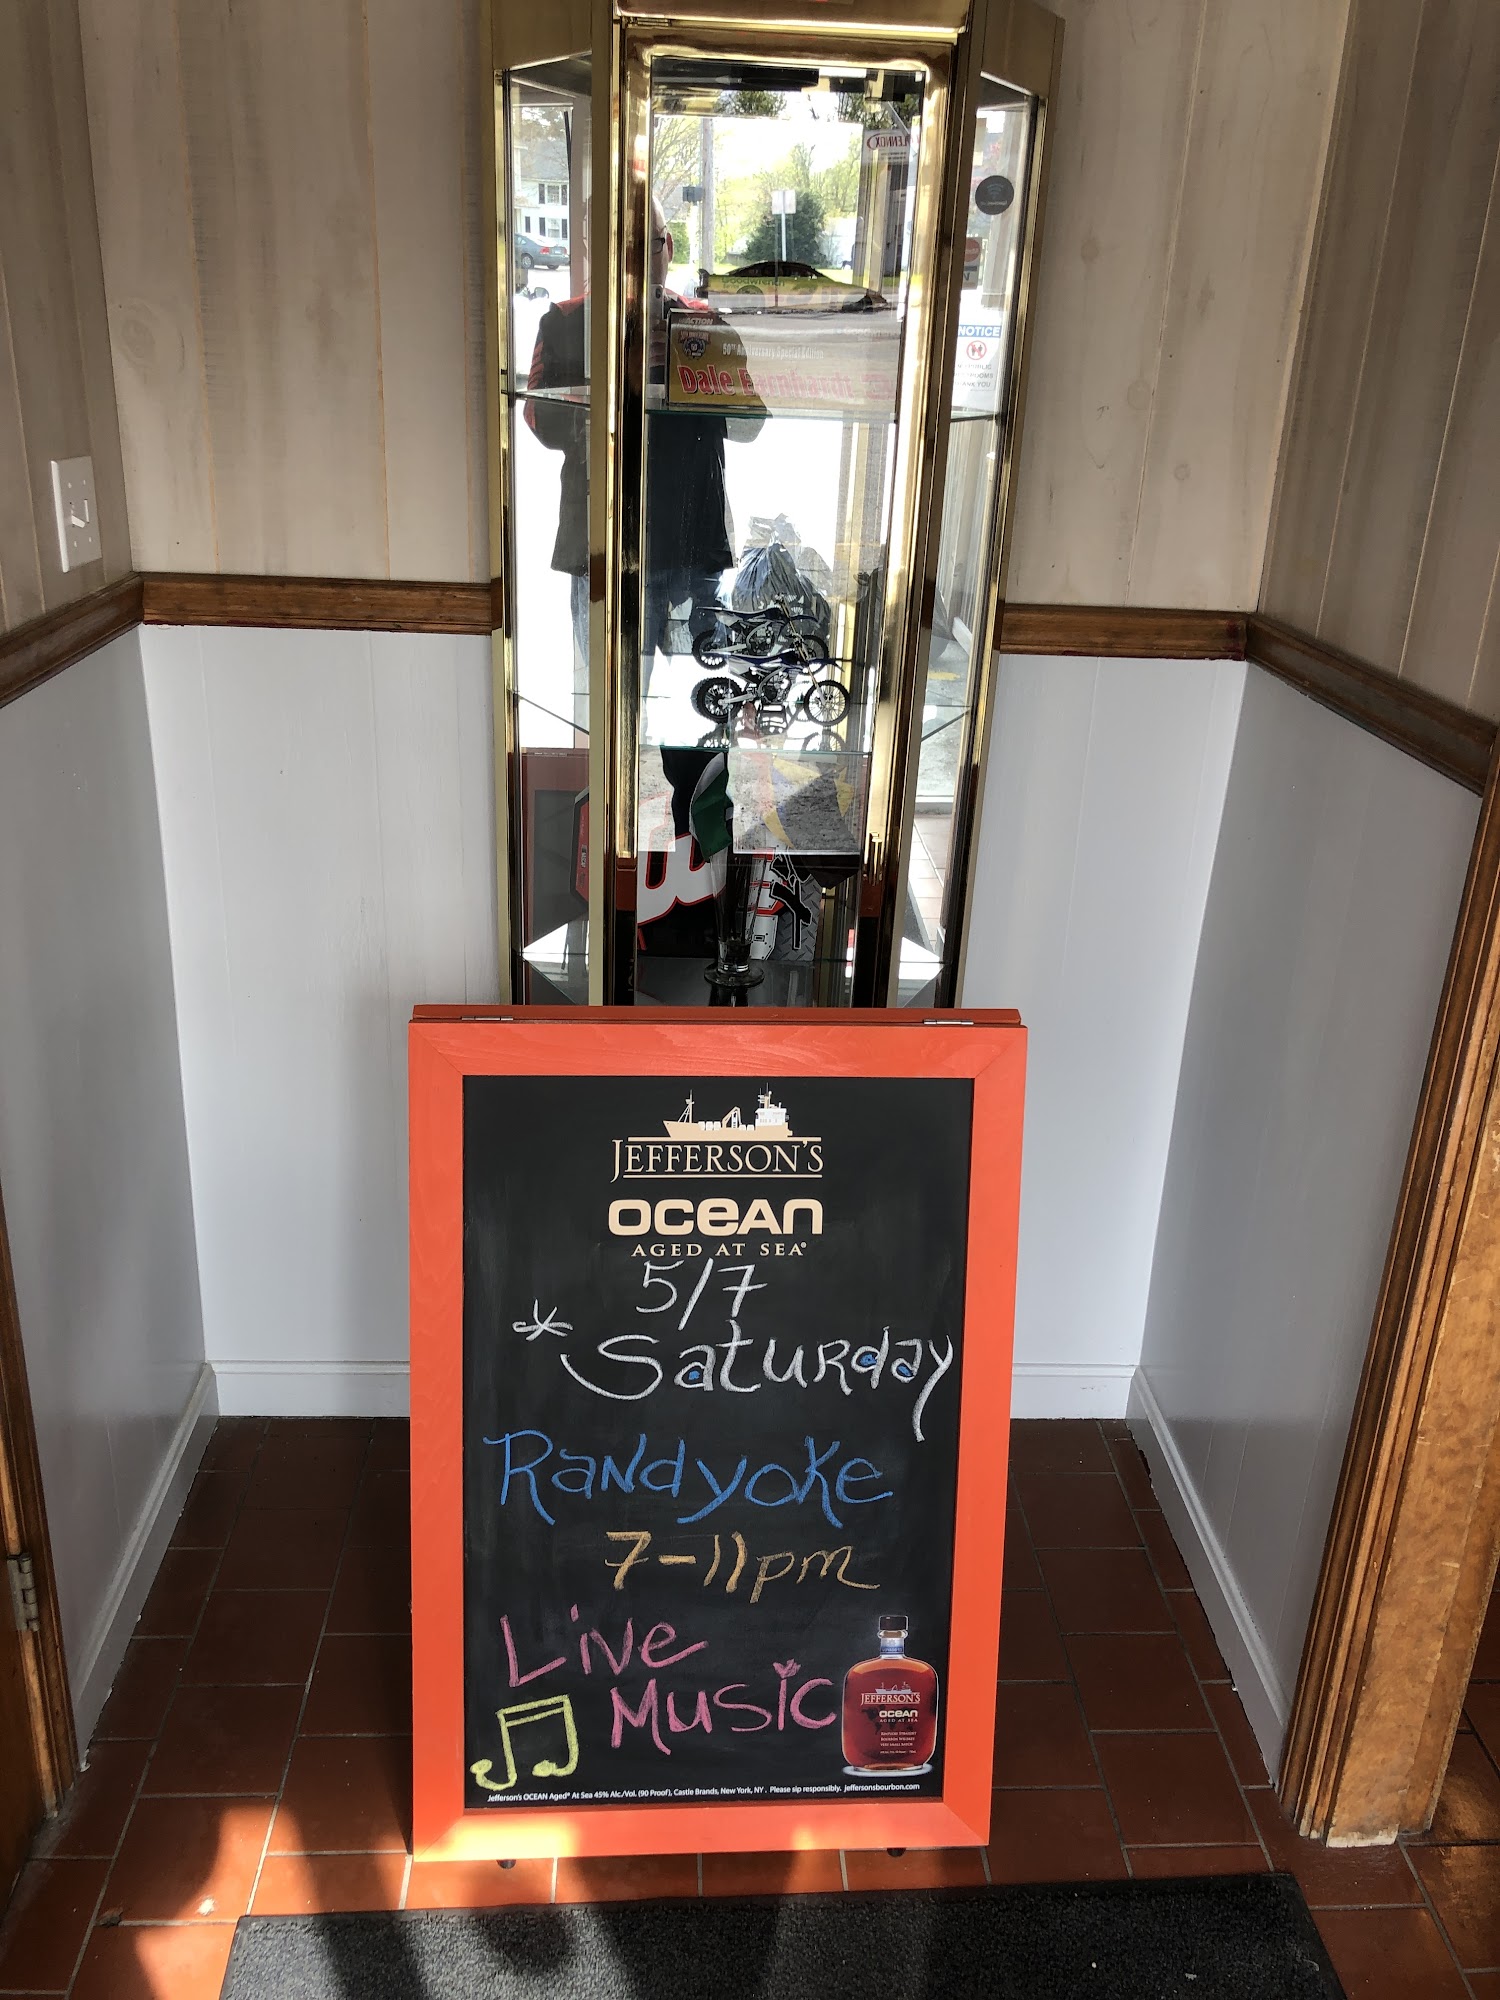 NOTICE
ACTION
50TH Anniversary Special Edition
Dale Earnhardt
JEFFERSON'S
OCEAN
AGED AT SEA®
5/7
*Saturday
Randyoke
7-11pm
Live
Music
JEFFERSON'S
OCEAN
AGED AT SEA
KENTUCKY STRAIGHT
BOURBON WHISKEY
VERY SMALL BATCH
Jefferson's OCEAN Aged® At Sea 45% Alc./Vol. (90 Proof), Castle Brands, New York, NY. Please sip responsibly. jeffersonsbourbon.com